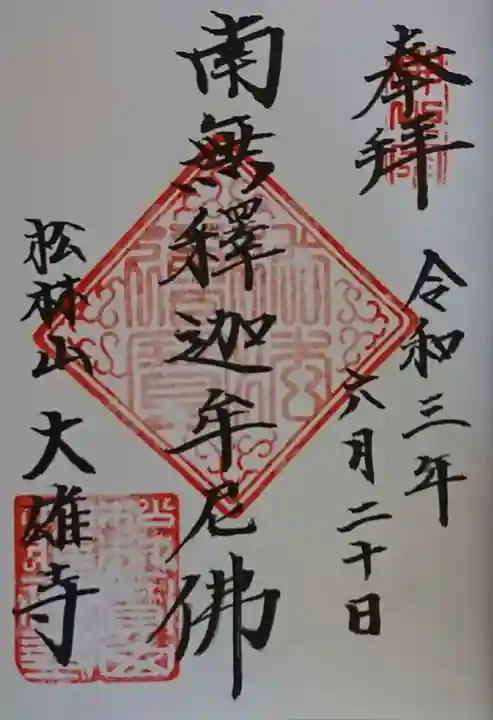 奉拝
令和三年
六月二十日
南無釋迦牟尼佛
松林山 大雄寺